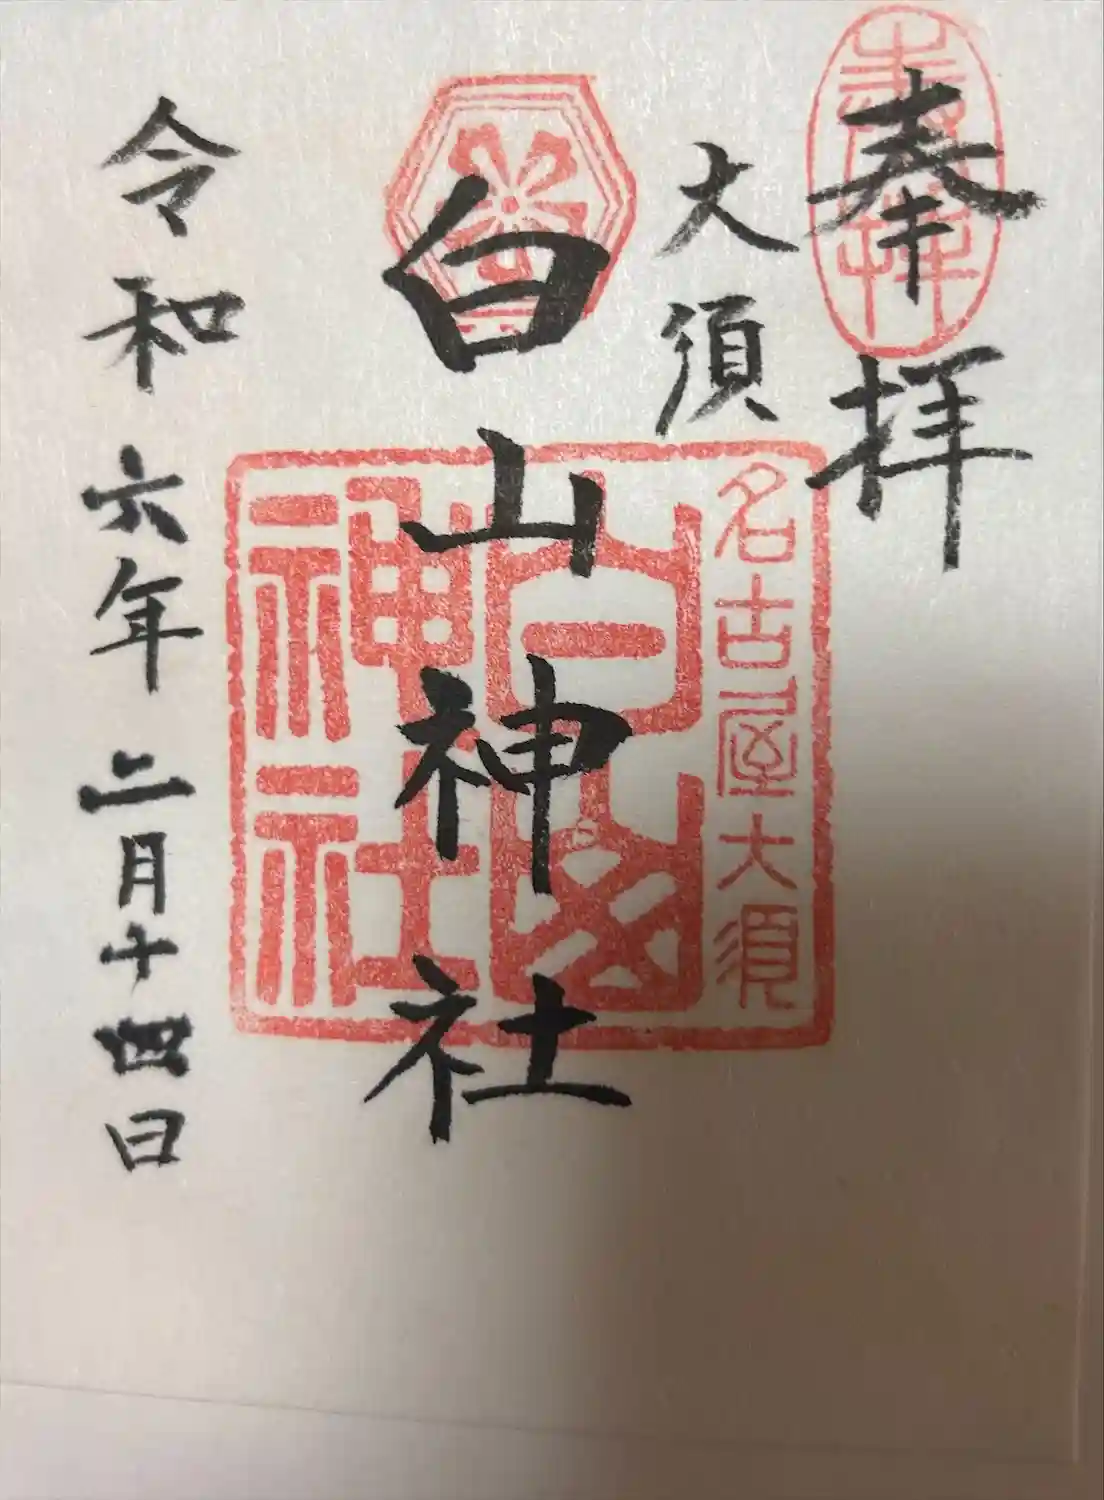 奉拝
奉拝
大須
白山神社
名古屋大須
白山
神社
令和六年二月十四日